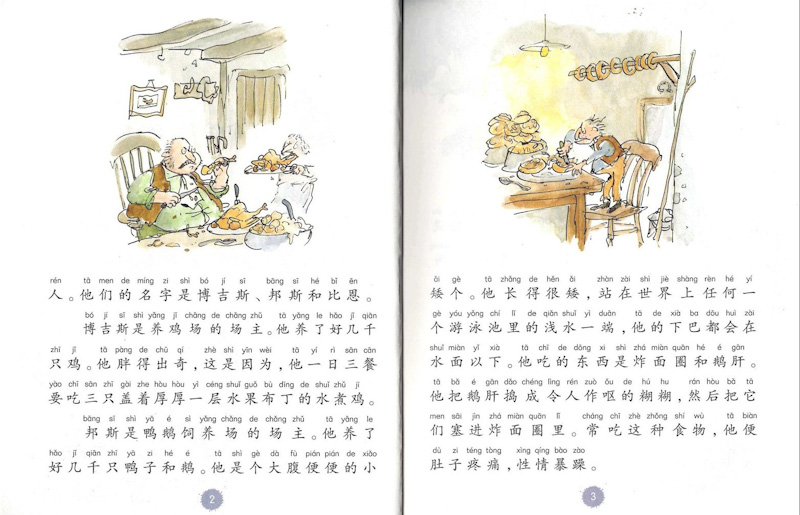 rén tā men de míng zi shì bó jí sī bāng sī hé bǐ ēn
人。他们的名字是博吉斯、邦斯和比恩。
bó jí sī shì yǎng jī chǎng de chǎng zhǔ tā yǎng le hǎo jǐ qiān
博吉斯是养鸡场的场主。他养了好几千
zhī jī tā pàng de chū qí zhè shì yīn wèi tā yí rì sān cān
只鸡。他胖得出奇，这是因为，他一日三餐
yào chī sān zhī gài zhe hòu hòu yì céng shuǐ guǒ bù dīng de shuǐ zhǔ jī
要吃三只盖着厚厚一层水果布丁的水煮鸡。
bāng sī shì yā é sì yǎng chǎng de chǎng zhǔ tā yǎng le
邦斯是鸭鹅饲养场的场主。他养了
hǎo jǐ qiān zhī yā zi hé é tā shì gè dà fù pián pián de xiǎo
好几千只鸭子和鹅。他是个大腹便便的小
2
ǎi gè tā zhǎng de hěn ǎi zhàn zài shì jiè shàng rèn hé yí
矮个。他长得很矮，站在世界上任何一
gè yóu yǒng chí lǐ de qiǎn shuǐ yì duān tā de xià ba dōu huì zài
个游泳池里的浅水一端，他的下巴都会在
shuǐ miàn yǐ xià tā chī de dōng xi shì zhá miàn quān hé é gān
水面以下。他吃的东西是炸面圈和鹅肝。
tā bǎ é gān dǎo chéng lìng rén zuò ǒu de hú hu rán hòu bǎ tā
他把鹅肝捣成令人作呕的糊糊，然后把它
men sāi jìn zhá miàn quān lǐ cháng chī zhè zhǒng shí wù tā biàn
们塞进炸面圈里。常吃这种食物，他便
dù zi téng tòng xìng qíng bào zào
肚子疼痛，性情暴躁。
3